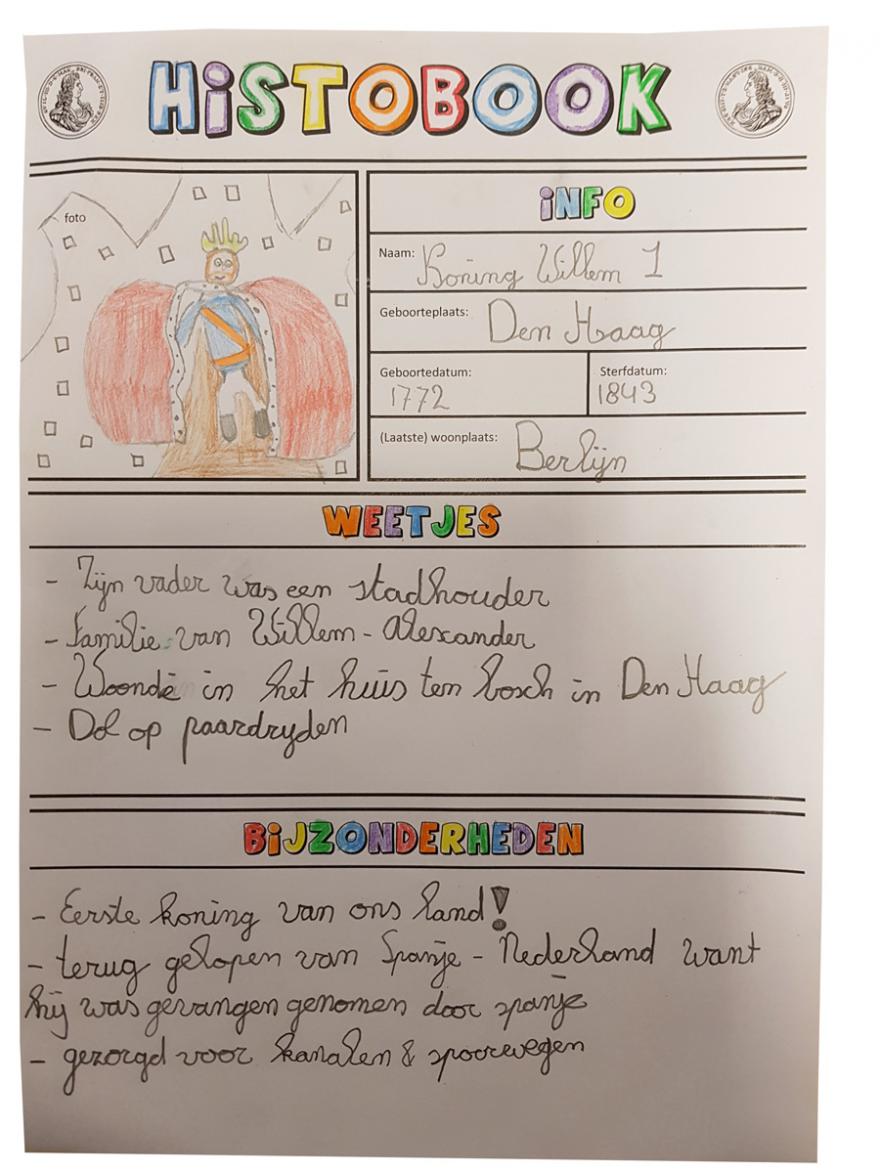 HiSTOBOOK
foto
iNFO
Naam: Koning Willem 1
Geboorteplaats: Den Haag
Geboortedatum: 1772
Sterfdatum: 1843
(Laatste) woonplaats: Berlijn
WEETJES
- Zijn vader was een stadhouder
- Familie van Willem-Alexander
- Woonde in het huis ten bosch in Den Haag
- Dol op paardryden
BiJZONDERHEDEN
- Eerste koning van ons land!
- terug gelopen van Spanje - Nederland want
hij was gevangen genomen door spanje
- gezorgd voor kanalen & spoorwegen